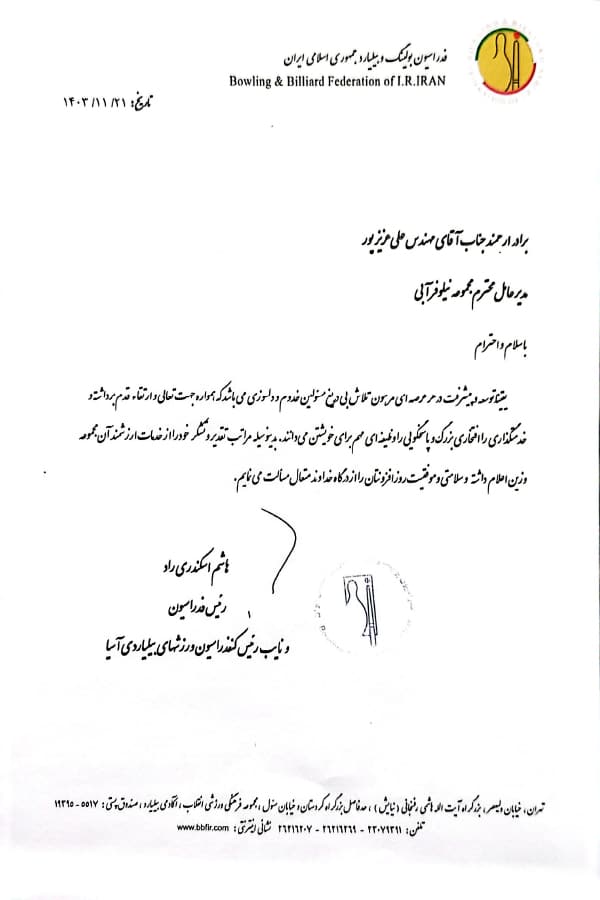 فدراسیون بولینگ و بیلیارد جمهوری اسلامی ایران
Bowling & Billiard Federation of I.R.IRAN
تاریخ: ۱۴۰۳/۱۱/۲۱
برادر ارجمند جناب آقای مهندس علی عزیزپور
مدیرعامل محترم مجموعه نیلوفر آبی
باسلام و احترام
یقینا توسعه و پیشرفت در هر عرصه ای مرهون تلاش بی دریغ مسئولین خدوم و دلسوزی می باشد که همواره جهت تعالی و ارتقاء قدم برداشته و
خدمتگذاری را افتخاری بزرگ و پاسخگویی را وظیفه ای مهم برای خویشتن می دانند. بدینوسیله مراتب تقدیر و تشکر خود را از خدمات ارزشمند آن مجموعه
وزین اعلام داشته و سلامتی و موفقیت روز افزونتان را از درگاه خداوند متعال مسألت می نمایم.
هاشم اسکندری راد
رئیس فدراسیون
و نایب رئیس کنفدراسیون ورزشهای بیلیاردی آسیا
تهران، خیابان ولیعصر، بزرگراه آیت اله هاشمی رفسنجانی (نیایش)، حدفاصل بزرگراه کردستان و خیابان سئول، مجموعه فرهنگی ورزشی انقلاب، آکادمی بیلیارد، صندوق پستی: ۵۵۱۷ - ۱۹۳۹۵
تلفن: ۲۲۰۷۹۳۹۱ - ۲۶۲۱۶۲۶۹ - ۲۶۲۱۶۲۰۷ نشانی اینترنتی: www.bbfir.com